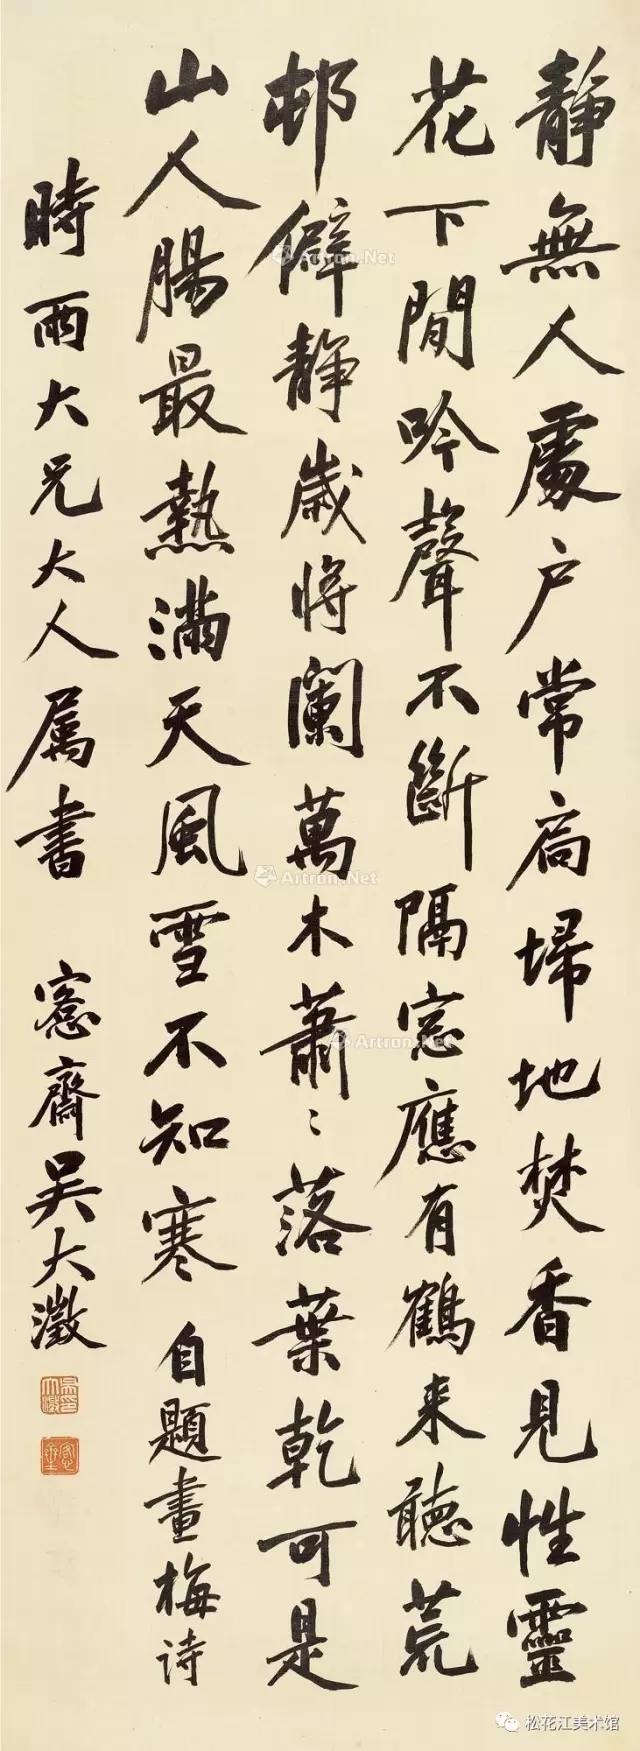 靜無人處户常扃埽地焚香見性靈
花下閒吟聲不斷隔窓應有鶴来聽荒
邨僻静歲將闌萬木蕭〻落葉乾可是
山人腸最熱滿天風雪不知寒 自題畫梅詩
時雨大兄大人属書 愙齋吴大澂
Artron.Net
Artron.Net
Artron.Net
松花江美术馆